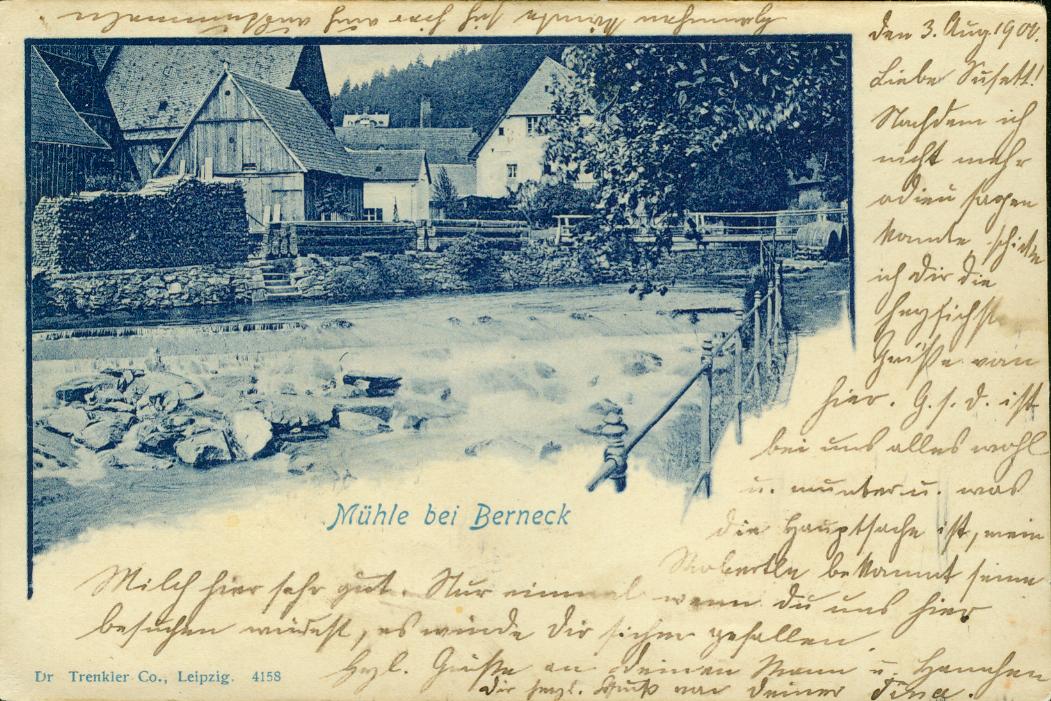 den 3. Aug. 1900.
Liebe Susett!
Nachdem ich
nicht mehr
adieu sagen
konnte schicke
ich dir die
herzlichst
Grüße von
hier. G. s. D. ist
bei uns alles wohl
u. munter u. was
die Hauptsache ist, mein
bekommt seine
Milch hier sehr gut. Nur einmal wenn du uns hier
besuchen würdest, es würde dir sicher gefallen.
Herzl. Grüße an deinen Mann u. Hannchen
dir herzl. Kuß von deiner Tina.
Mühle bei Berneck
Dr Trenkler Co., Leipzig. 4158